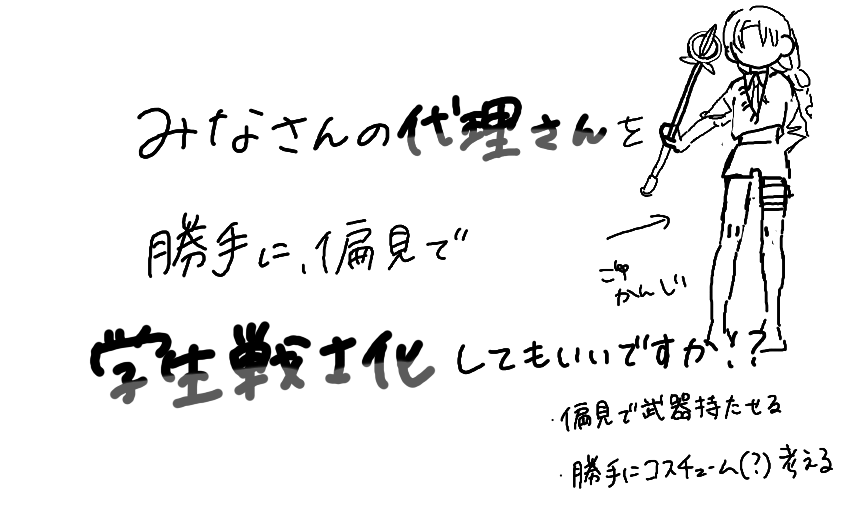 みなさんの代理さんを
勝手に、偏見で
学生戦士化してもいいですか!?
こゆかんじ
・偏見で武器持たせる
・勝手にコスチューム(?)考える